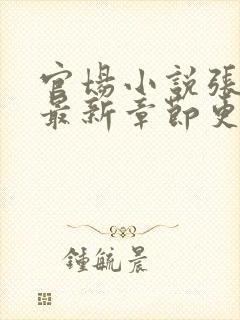 官場小說張
最新章節更
鍾毓晨